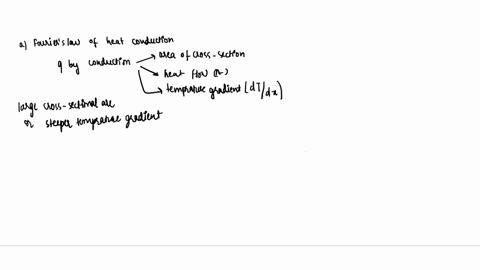 a) Fourier's law of heat conduction
q by conduction → area of cross-section
→ heat flow
→ temprature gradient [dT/dx]
large cross-sectional are
or steeper temprature gradient